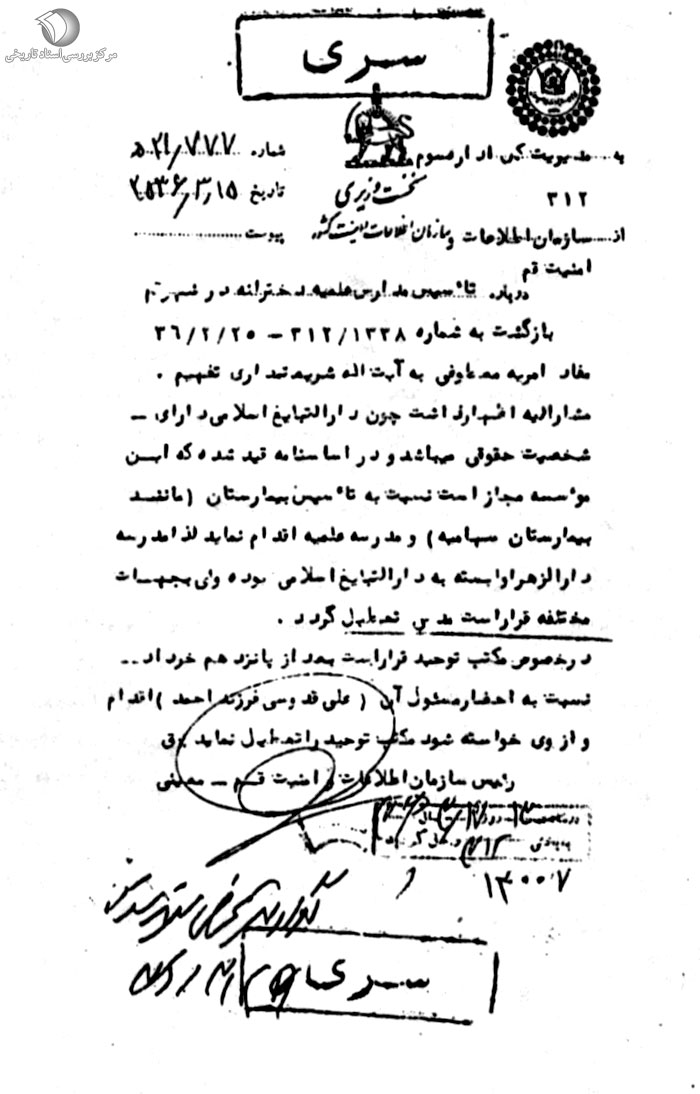 مرکز بررسی اسناد تاریخی
سری
به مدیریت کل اداره سوم
۳۱۲
از سازمان اطلاعات و
امنیت قم
نخست وزیری
سازمان اطلاعات و امنیت کشور
شماره ۷۷۷/
تاریخ ۲۵۳۶/۳/۱۵
پیوست
درباره تاسیس مدارس علمیه دخترانه در شهر قم
بازگشت به شماره ۳۱۲/۱۳۳۸ – ۳۶/۲/۲۵
مفاد امریه معطوفی به آیت اله شریعتمداری تفهیم .
مشارالیه اظهار داشت چون دارالتبلیغ اسلامی دارای –
شخصیت حقوقی میباشد و در اساسنامه قید شده که این
موسسه مجاز است نسبت به تاسیس بیمارستان (مانند
بیمارستان سهامیه) و مدرسه علمیه اقدام نماید لذا مدرسه
دارالزهرا وابسته به دارالتبلیغ اسلامی بوده ولی بجهات
مختلفه قرار است مدتی تعطیل گردد .
در خصوص مکتب توحید قرار است بعد از پانزدهم خرداد --
نسبت به احضار مسئول آن (علی قدوسی فرزند احمد) اقدام
و از وی خواسته شود مکتب توحید را تعطیل نماید
رئیس سازمان اطلاعات و امنیت قم – معینی
۱۴۰۰۷
سری